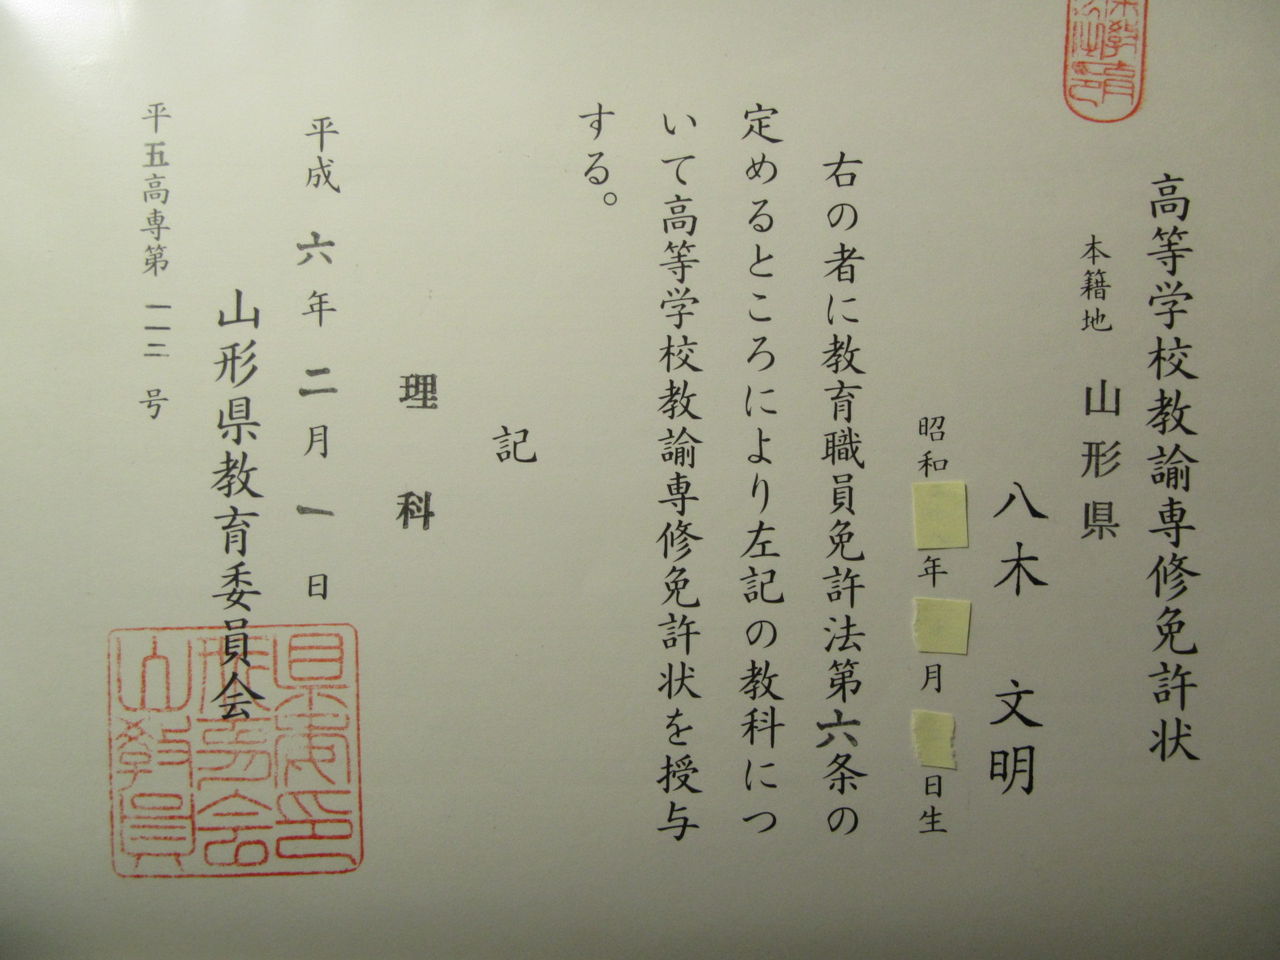 高等学校教諭専修免許状
本籍地 山形県
八木 文明
昭和 年 月 日生
右の者に教育職員免許法第六条の
定めるところにより左記の教科につ
いて高等学校教諭専修免許状を授与
する。
記
理科
平成六年二月一日
山形県教育委員会
平五高専第一一二号